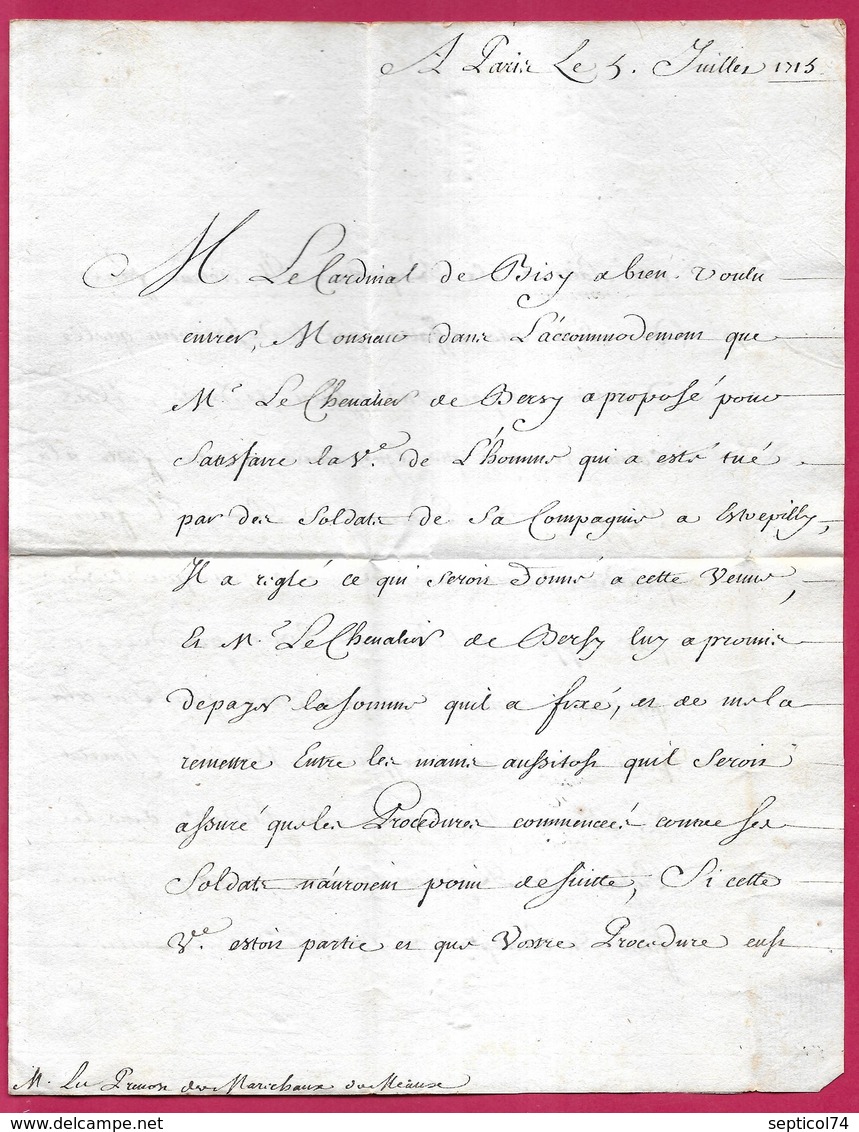 A Paris Le 5. Juillet 1715
M Le Cardinal de Bisy a bien voulu
entrer, Monsieur dans L'accommodement que
Mr. Le Chevalier de Bersy a proposé pour
satisfaire la Ve. de L'homme qui a esté tué
par des soldats de sa Compagnie a Estrepilly,
Il a reglé ce qui seroit donné a cette Veuve,
Et Mr. Le Chevalier de Bersy luy a promis
de payer la somme qu'il a fixé, et de me la
remettre Entre les mains aussitost qu'il seroit
assuré que les Procedures commencées contre ses
Soldats n'auroient point de suitte, Si cette
Ve. estoit partie et que Vostre Procedure eust
M. Le Prevost des Marechaux de Meaux
septicol74